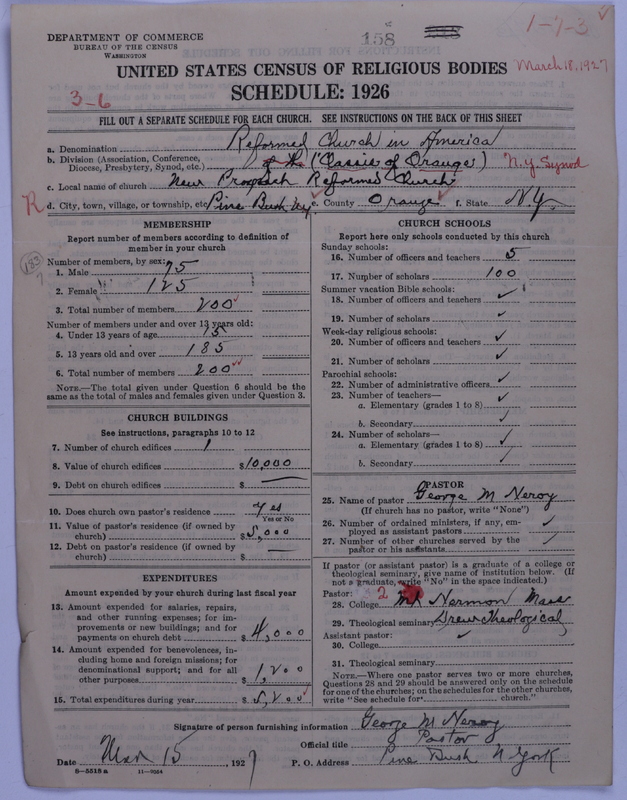 DEPARTMENT OF COMMERCE
BUREAU OF THE CENSUS
WASHINGTON
158
1-7-3
March 18, 1927
UNITED STATES CENSUS OF RELIGIOUS BODIES
SCHEDULE: 1926
3-6
FILL OUT A SEPARATE SCHEDULE FOR EACH CHURCH. SEE INSTRUCTIONS ON THE BACK OF THIS SHEET
a. Denomination Reformed Church in America
b. Division (Association, Conference, Diocese, Presbytery, Synod, etc.) of the (Classis of Orange) N.Y. Synod
c. Local name of church New Prospect Reformed Church
R d. City, town, village, or township, etc. Pine Bush, N.y. e. County Orange f. State N.Y.
MEMBERSHIP
Report number of members according to definition of member in your church
183
Number of members, by sex:
1. Male 75
2. Female 125
3. Total number of members 200
Number of members under and over 13 years old:
4. Under 13 years of age 15
5. 13 years old and over 185
6. Total number of members 200
NOTE.—The total given under Question 6 should be the same as the total of males and females given under Question 3.
CHURCH BUILDINGS
See instructions, paragraphs 10 to 12
7. Number of church edifices 1
8. Value of church edifices $10,000
9. Debt on church edifices $
10. Does church own pastor's residence? yes
Yes or No
11. Value of pastor's residence (if owned by church) $5,000
12. Debt on pastor's residence (if owned by church) $
EXPENDITURES
Amount expended by your church during last fiscal year
13. Amount expended for salaries, repairs, and other running expenses; for improvements or new buildings; and for payments on church debt $4,000
14. Amount expended for benevolences, including home and foreign missions; for denominational support; and for all other purposes $1,200
15. Total expenditures during year $5,200
CHURCH SCHOOLS
Report here only schools conducted by this church
Sunday schools:
16. Number of officers and teachers 5
17. Number of scholars 100
Summer vacation Bible schools:
18. Number of officers and teachers
19. Number of scholars
Week-day religious schools:
20. Number of officers and teachers
21. Number of scholars
Parochial schools:
22. Number of administrative officers
23. Number of teachers—
a. Elementary (grades 1 to 8)
b. Secondary
24. Number of scholars—
a. Elementary (grades 1 to 8)
b. Secondary
PASTOR
25. Name of pastor George M Neroy
(If church has no pastor, write "None")
26. Number of ordained ministers, if any, employed as assistant pastors
27. Number of other churches served by the pastor or his assistants
If pastor (or assistant pastor) is a graduate of a college or theological seminary, give name of institution below. (If not a graduate, write "No" in the space indicated.)
Pastor: 2
28. College Mt Hermon Mass
29. Theological seminary Drew Theological
Assistant pastor:
30. College
31. Theological seminary
NOTE.—Where one pastor serves two or more churches, Questions 28 and 29 should be answered only on the schedule for one of the churches; on the schedules for the other churches, write "See schedule for church."
Signature of person furnishing information George M Neroy
Official title Pastor
Date Mar 15, 1927 P. O. Address Pine Bush N York
8-5518 a 11-9054